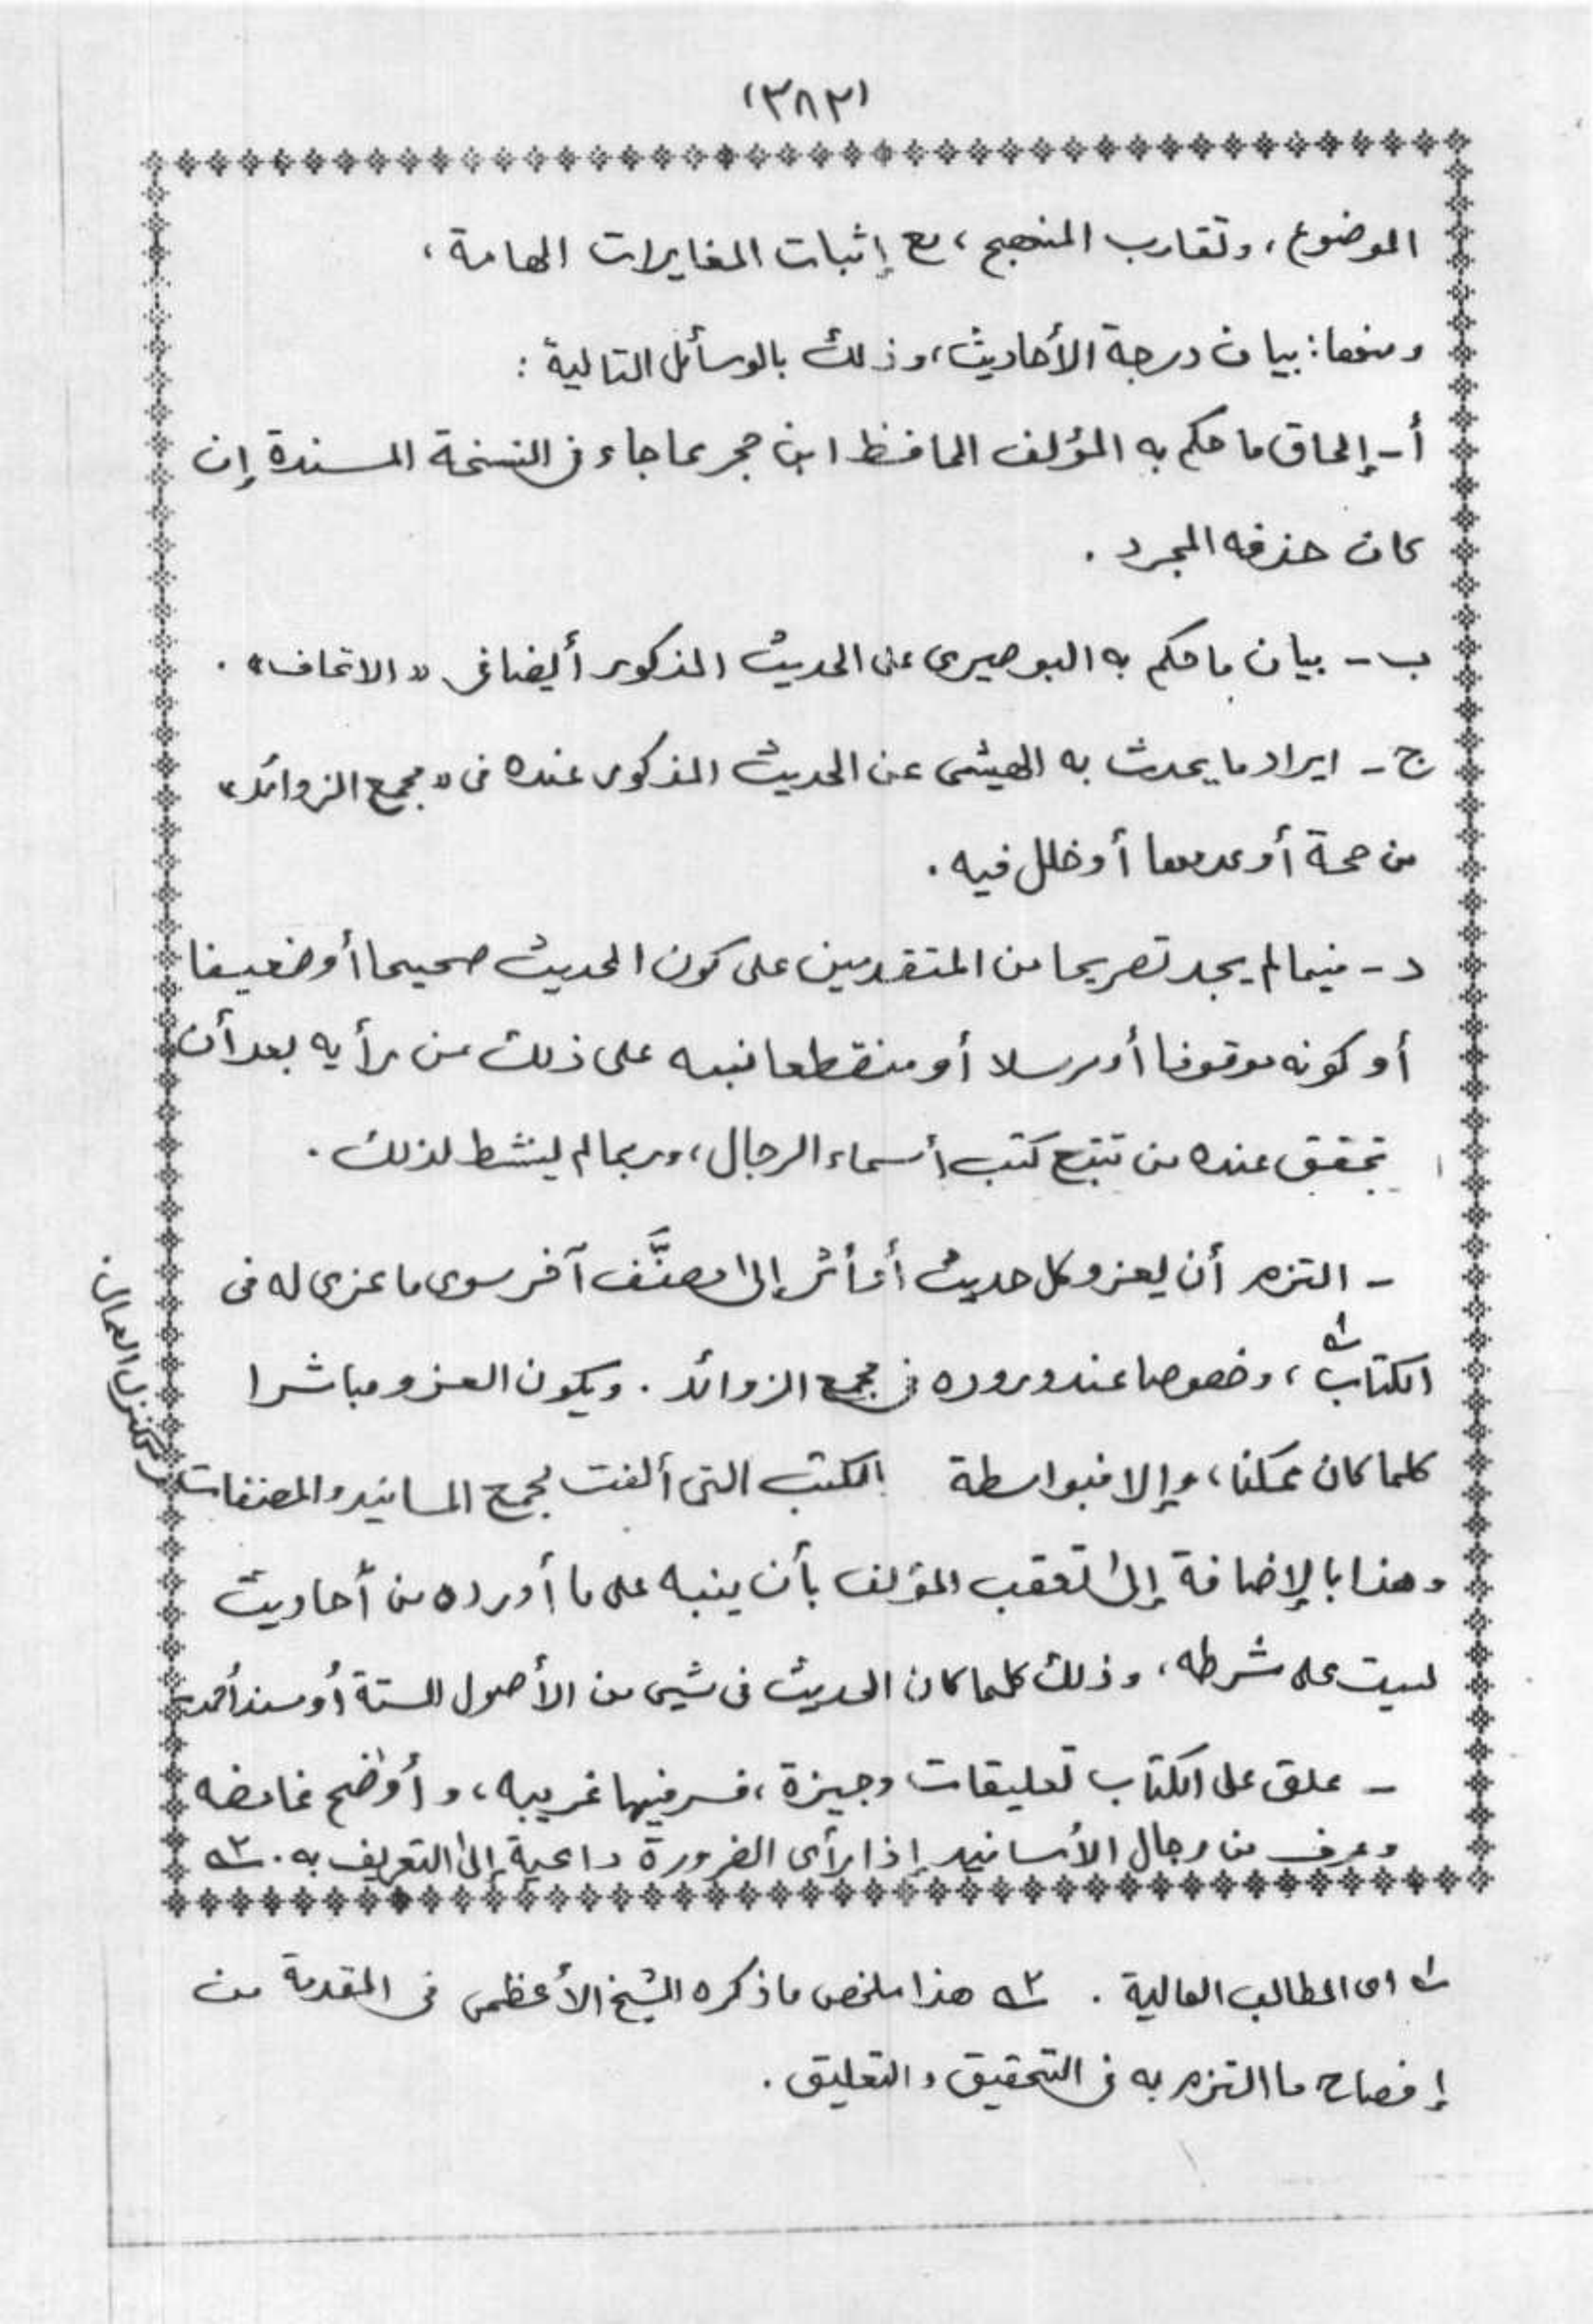 (٣٨٣)
الموضوع، وتقارب المنهج، مع إثبات المغايرات الهامة،
ومنها: بيان درجة الأحاديث، وذلك بالوسائل التالية:
أ- إلحاق ما حكم به المؤلف الحافظ ابن حجر مما جاء فى النسخة المسندة إن
كان حذفه المجرد.
ب- بيان ما حكم به البوصيرى على الحديث المذكور أيضا فى «الاتحاف».
ج- ايراد ما يحدث به الهيثمى عن الحديث المذكور عنده فى «مجمع الزوائد»
من صحة أو عدمها أو خلل فيه.
د- فيما لم يجد تصريحا من المتقدمين على كون الحديث صحيحا أو ضعيفا
أو كونه موقوفا أو مرسلا أو منقطعا نبه على ذلك من رأيه بعد أن
تحقق عنده من تتبع كتب أسماء الرجال، وربما لم ينشط لذلك.
- التزم أن يعزو كل حديث أو أثر إلى مصنَّف آخر سوى ما عزى له فى
الكتاب١، وخصوصا عند وروده فى مجمع الزوائد. ويكون العزو مباشرا
كلما كان ممكنا، وإلا فبواسطة الكتب التى ألفت لجمع المسانيد والمصنفات
ككنز العمال.
وهذا بالإضافة إلى تعقب المؤلف بأن ينبه على ما أورده من أحاديث
ليست على شرطه، وذلك كلما كان الحديث فى شيى من الأصول الستة أو مسند أحمد.
- علق على الكتاب تعليقات وجيزة، فسر فيها غريبه، وأوضح غامضه
وعرف من رجال الأسانيد إذا رأى الضرورة داعية إلى التعريف به. ٢
١ اى المطالب العالية. ٢ هذا ملخص ما ذكره الشيخ الأعظمى فى المقدمة من
إفصاح ما التزم به فى التحقيق والتعليق.